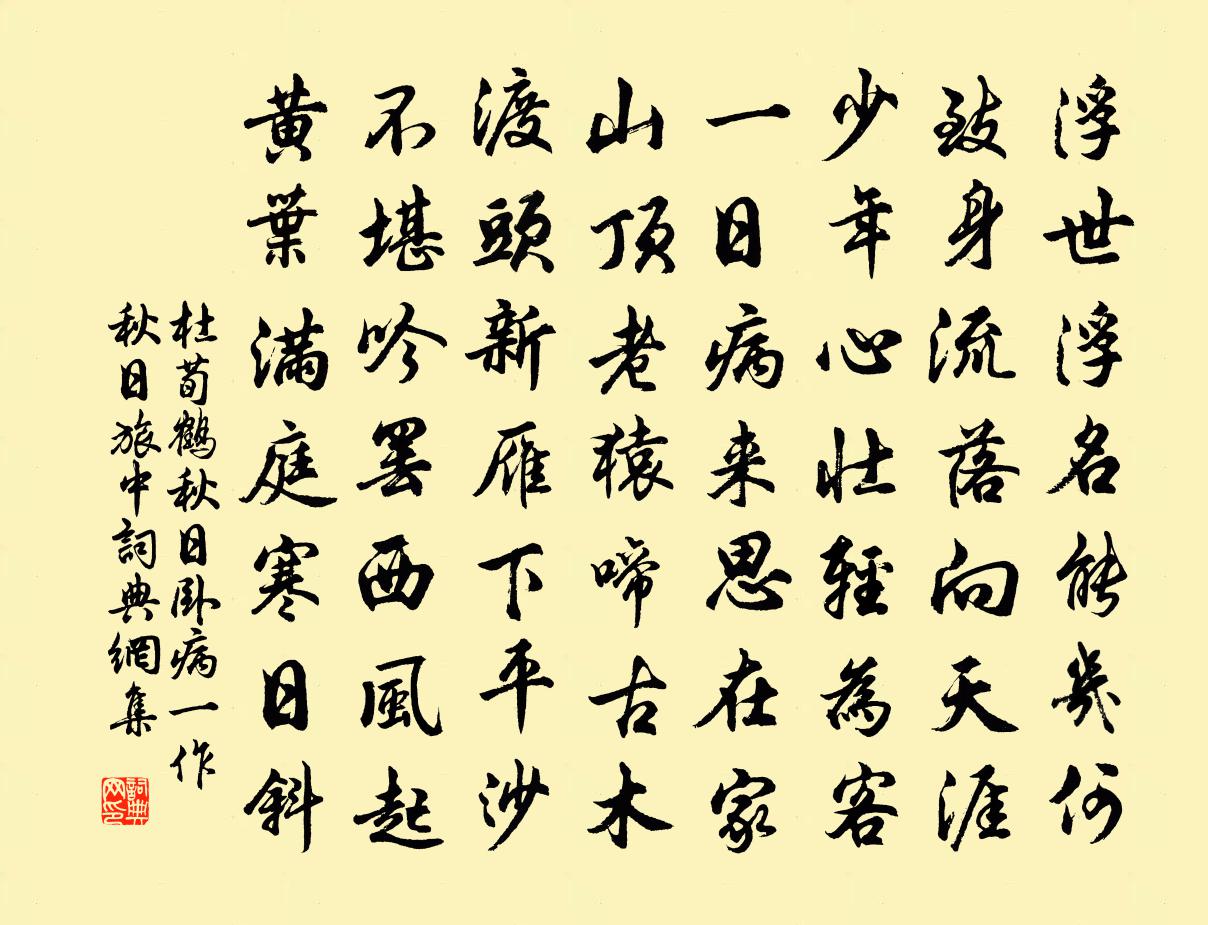 浮世浮名能幾何
致身流落向天涯
少年心壯輕為客
一日病来思在家
山頂老猿啼古木
渡頭新雁下平沙
不堪吟罢西風起
黃葉滿庭寒日斜
杜荀鶴秋日卧病一作
秋日旅中詞典網集
詞典
网印